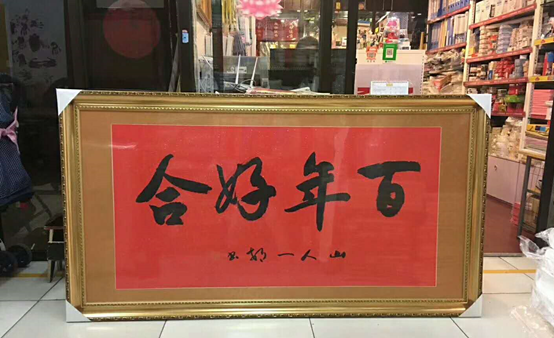 百年好合
山人一郝书